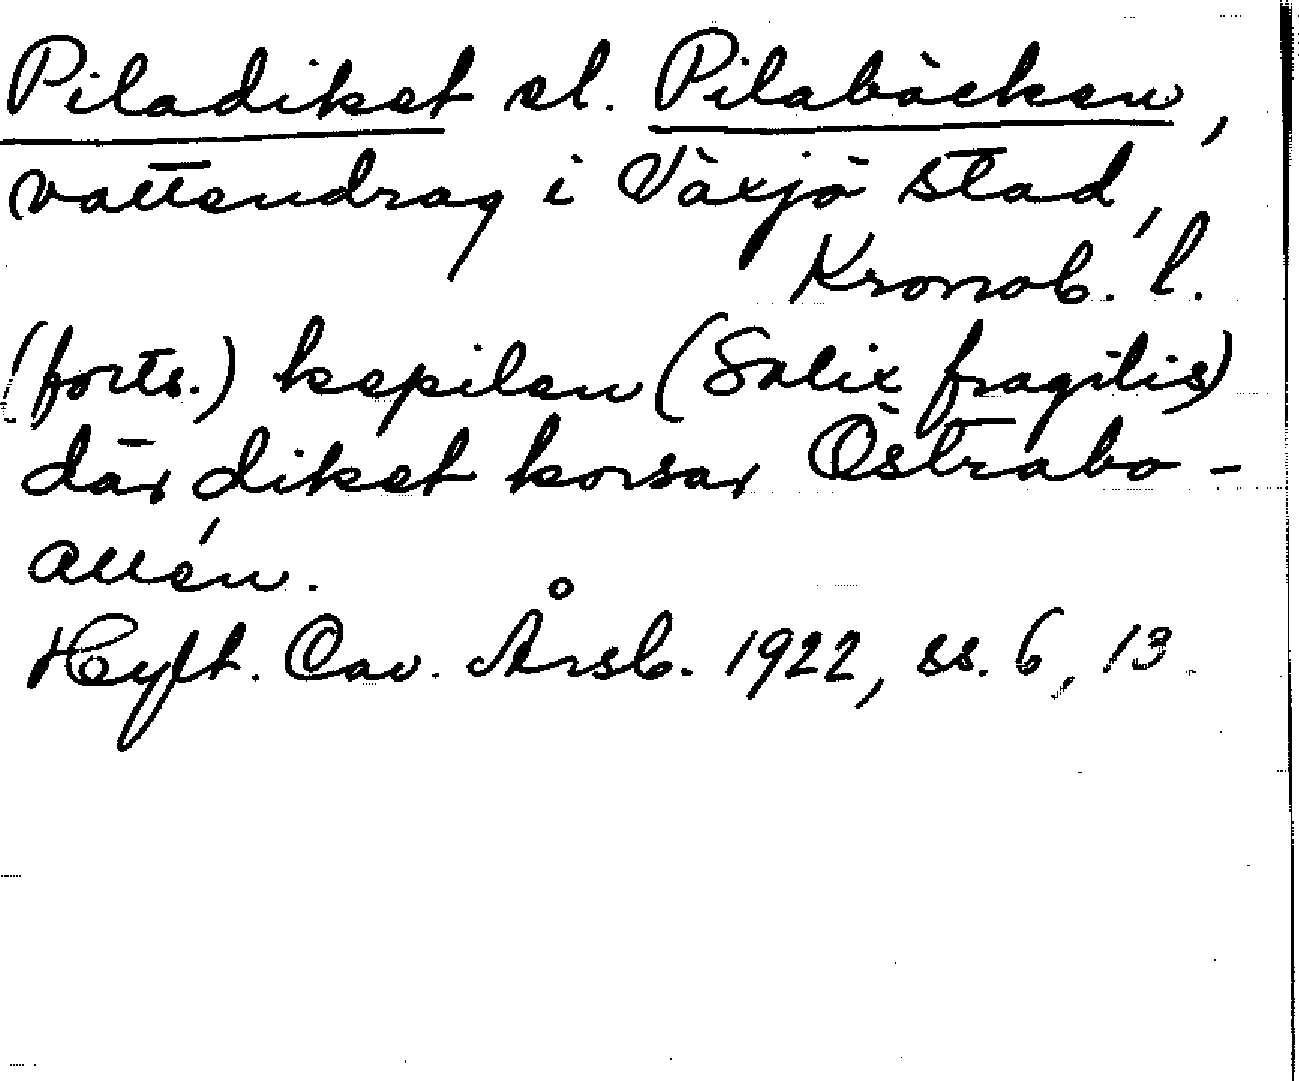 Piladiket el. Pilabäcken,
vattendrag i Växjö stad,
Kronob. l.
(forts.) kepilen (Salix fragilis)
där diket korsar Östrabo-
allén.
Hylt. Cav. Årsb. 1922, ss. 6, 13